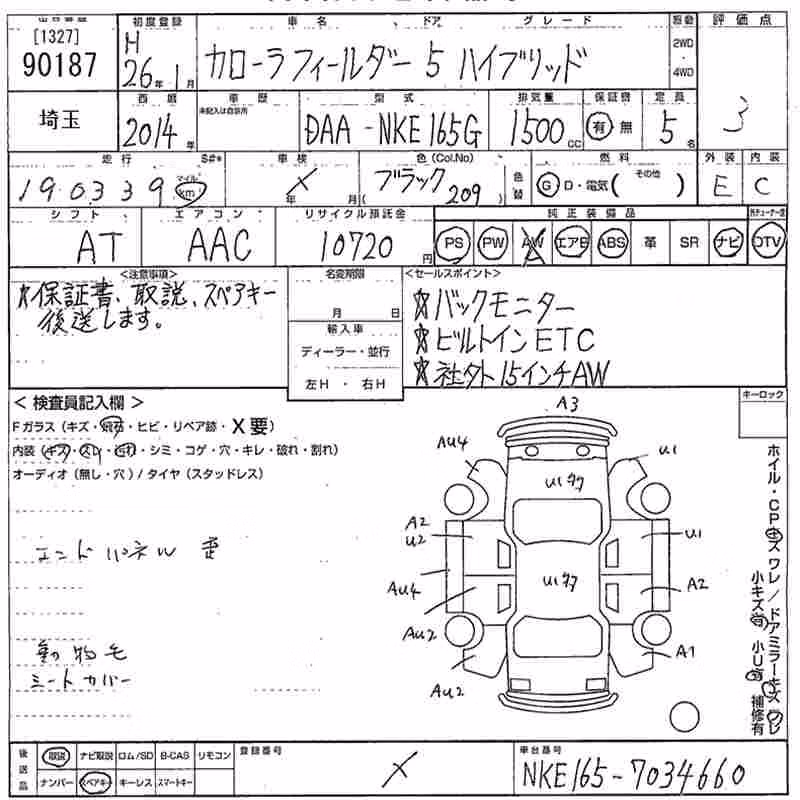 出品番号 初度登録 車名 ドア グレード 駆動 評価点
[1327] 90187 H 26年 1月 カローラフィールダー 5 ハイブリッド 2WD・4WD 3
埼玉 西暦 車歴 型式 排気量 保証書 定員
2014年 未記入は自家用 DAA-NKE165G 1500cc 有 無 5名
走行 S#* 車検 色(Col.No) 燃料 外装 内装
190339 マイル km X 年 月 ブラック ( 209 ) 色替 G D・電気 ( その他 ) E C
シフト エアコン リサイクル預託金 純正装備品
AT AAC 10720円 PS PW AW エアB ABS 革 SR ナビ DTV
<注意事項> 名変期限 <セールスポイント>
☆保証書、取説、スペアキー
後送します。
月 日
輸入車
ディーラー・並行
左H ・ 右H
☆バックモニター
☆ビルトインETC
☆社外15インチAW
<検査員記入欄> キーロック
Fガラス (キズ・飛石・ヒビ・リペア跡・X要)
内装 (キズ・スレ・汚れ・シミ・コゲ・穴・キレ・破れ・割れ)
オーディオ (無し・穴) / タイヤ (スタッドレス)
エンドパネル 歪
動物毛
シートカバー
A3
AU4 U1
U1
A2 U2 U1
U1
AU4 A2
AU2 A1
AU2
ホイル・CPキズ ワレ / ドアミラーキズ ワレ
小キズ有 小U有 補修有
後送品 取説 ナビ取説 ロム/SD B-CAS リモコン 登録番号 車台番号
ナンバー スペアキー キーレス スマートキー X NKE165-7034660